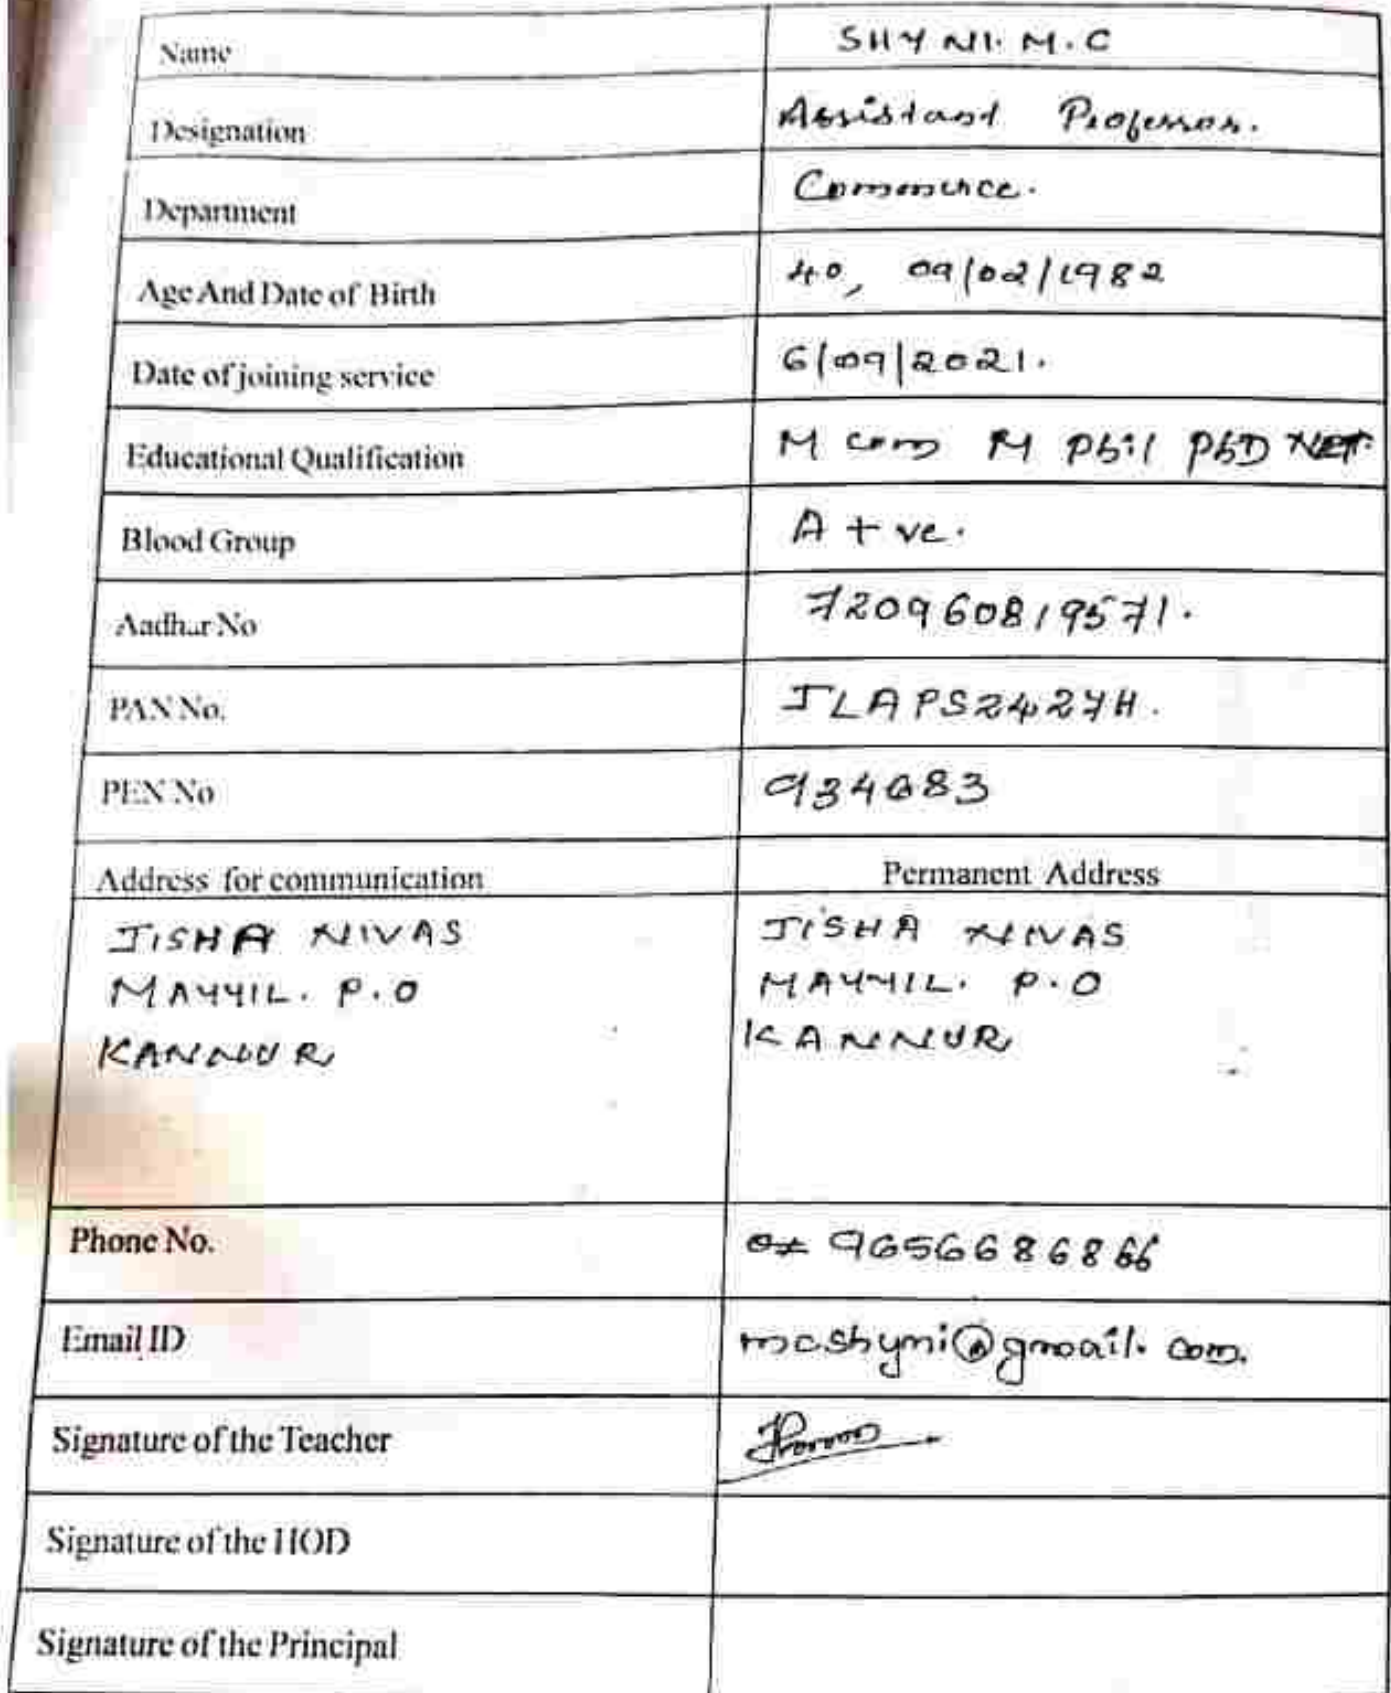 Name SHYNI. M. C
Designation Assistant Professor.
Department Commerce.
Age And Date of Birth 40, 09/02/1982
Date of joining service 6/09/2021.
Educational Qualification M com M Phil PhD NET.
Blood Group A + ve.
Aadhar No 720960819571.
PAN No. JLAPS2427H.
PEN No 934683
Address for communication Permanent Address
JISHA NIVAS JISHA NIVAS
MAYYIL. P.O MAYYIL. P.O
KANNUR KANNUR
Phone No. 9656686866
Email ID mcshyni@gmail.com.
Signature of the Teacher
Signature of the HOD
Signature of the Principal